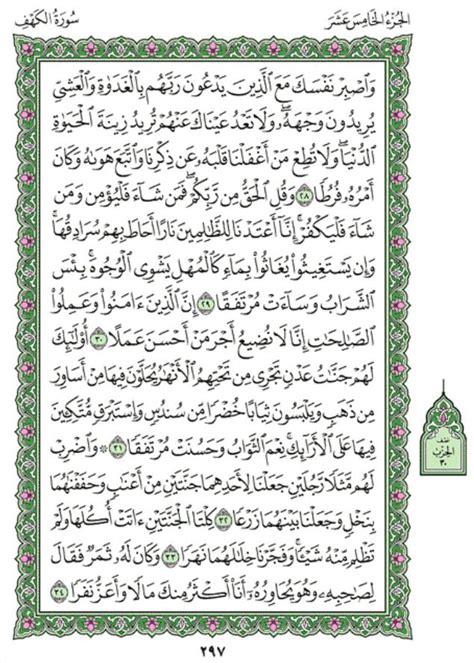 الجُزْءُ الخَامِسَ عَشَرَ
سُورَةُ الكَهْفِ
وَٱصْبِرْ نَفْسَكَ مَعَ ٱلَّذِينَ يَدْعُونَ رَبَّهُم بِٱلْغَدَوٰةِ وَٱلْعَشِىِّ
يُرِيدُونَ وَجْهَهُۥ ۖ وَلَا تَعْدُ عَيْنَاكَ عَنْهُمْ تُرِيدُ زِينَةَ ٱلْحَيَوٰةِ
ٱلدُّنْيَا ۖ وَلَا تُطِعْ مَنْ أَغْفَلْنَا قَلْبَهُۥ عَن ذِكْرِنَا وَٱتَّبَعَ هَوَىٰهُ وَكَانَ
أَمْرُهُۥ فُرُطًا ٢٨ وَقُلِ ٱلْحَقُّ مِن رَّبِّكُمْ ۖ فَمَن شَآءَ فَلْيُؤْمِن وَمَن
شَآءَ فَلْيَكْفُرْ ۚ إِنَّآ أَعْتَدْنَا لِلظَّٰلِمِينَ نَارًا أَحَاطَ بِهِمْ سُرَادِقُهَا ۚ
وَإِن يَسْتَغِيثُوا۟ يُغَاثُوا۟ بِمَآءٍ كَٱلْمُهْلِ يَشْوِى ٱلْوُجُوهَ ۚ بِئْسَ
ٱلشَّرَابُ وَسَآءَتْ مُرْتَفَقًا ٢٩ إِنَّ ٱلَّذِينَ ءَامَنُوا۟ وَعَمِلُوا۟
ٱلصَّٰلِحَٰتِ إِنَّا لَا نُضِيعُ أَجْرَ مَنْ أَحْسَنَ عَمَلًا ٣٠ أُو۟لَٰٓئِكَ
لَهُمْ جَنَّٰتُ عَدْنٍ تَجْرِى مِن تَحْتِهِمُ ٱلْأَنْهَٰرُ يُحَلَّوْنَ فِيهَا مِنْ أَسَاوِرَ
مِن ذَهَبٍ وَيَلْبَسُونَ ثِيَابًا خُضْرًا مِّن سُندُسٍ وَإِسْتَبْرَقٍ مُّتَّكِـِٔينَ
فِيهَا عَلَى ٱلْأَرَآئِكِ ۚ نِعْمَ ٱلثَّوَابُ وَحَسُنَتْ مُرْتَفَقًا ٣١ ۞ وَٱضْرِبْ
لَهُم مَّثَلًا رَّجُلَيْنِ جَعَلْنَا لِأَحَدِهِمَا جَنَّتَيْنِ مِنْ أَعْنَٰبٍ وَحَفَفْنَٰهُمَا
بِنَخْلٍ وَجَعَلْنَا بَيْنَهُمَا زَرْعًا ٣٢ كِلْتَا ٱلْجَنَّتَيْنِ ءَاتَتْ أُكُلَهَا وَلَمْ
تَظْلِم مِّنْهُ شَيْـًٔا ۚ وَفَجَّرْنَا خِلَٰلَهُمَا نَهَرًا ٣٣ وَكَانَ لَهُۥ ثَمَرٌ فَقَالَ
لِصَٰحِبِهِۦ وَهُوَ يُحَاوِرُهُۥٓ أَنَا۠ أَكْثَرُ مِنكَ مَالًا وَأَعَزُّ نَفَرًا ٣٤
نصف
الحزب
٣٠
٢٩٧